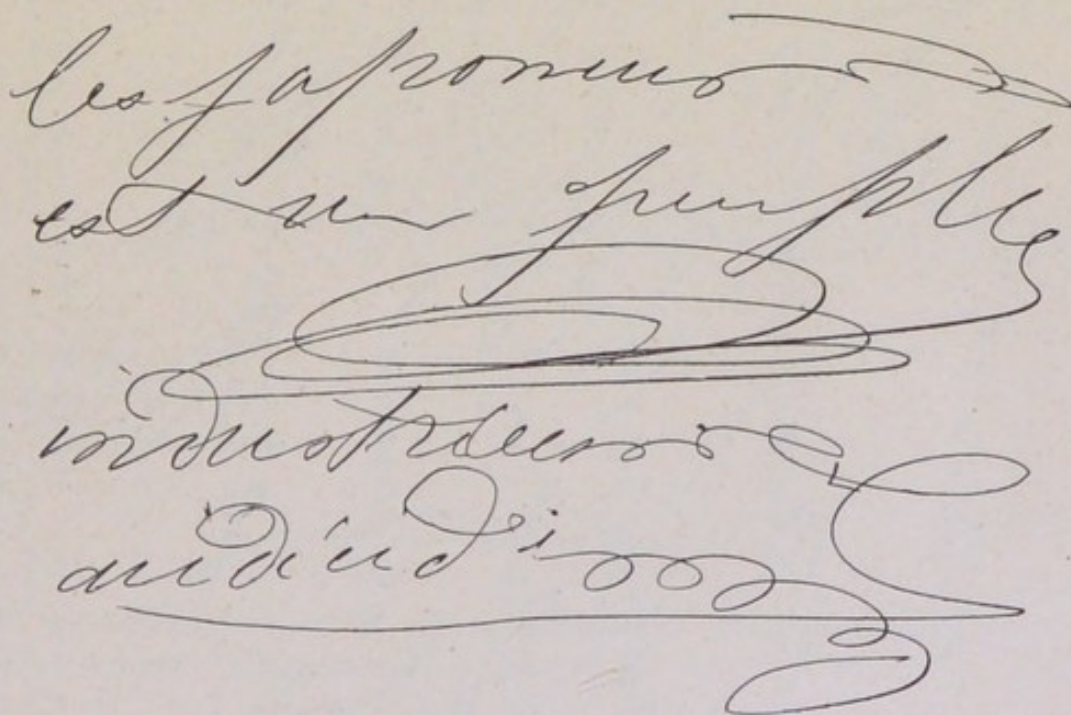 les japonais
est un peuple
industrieux